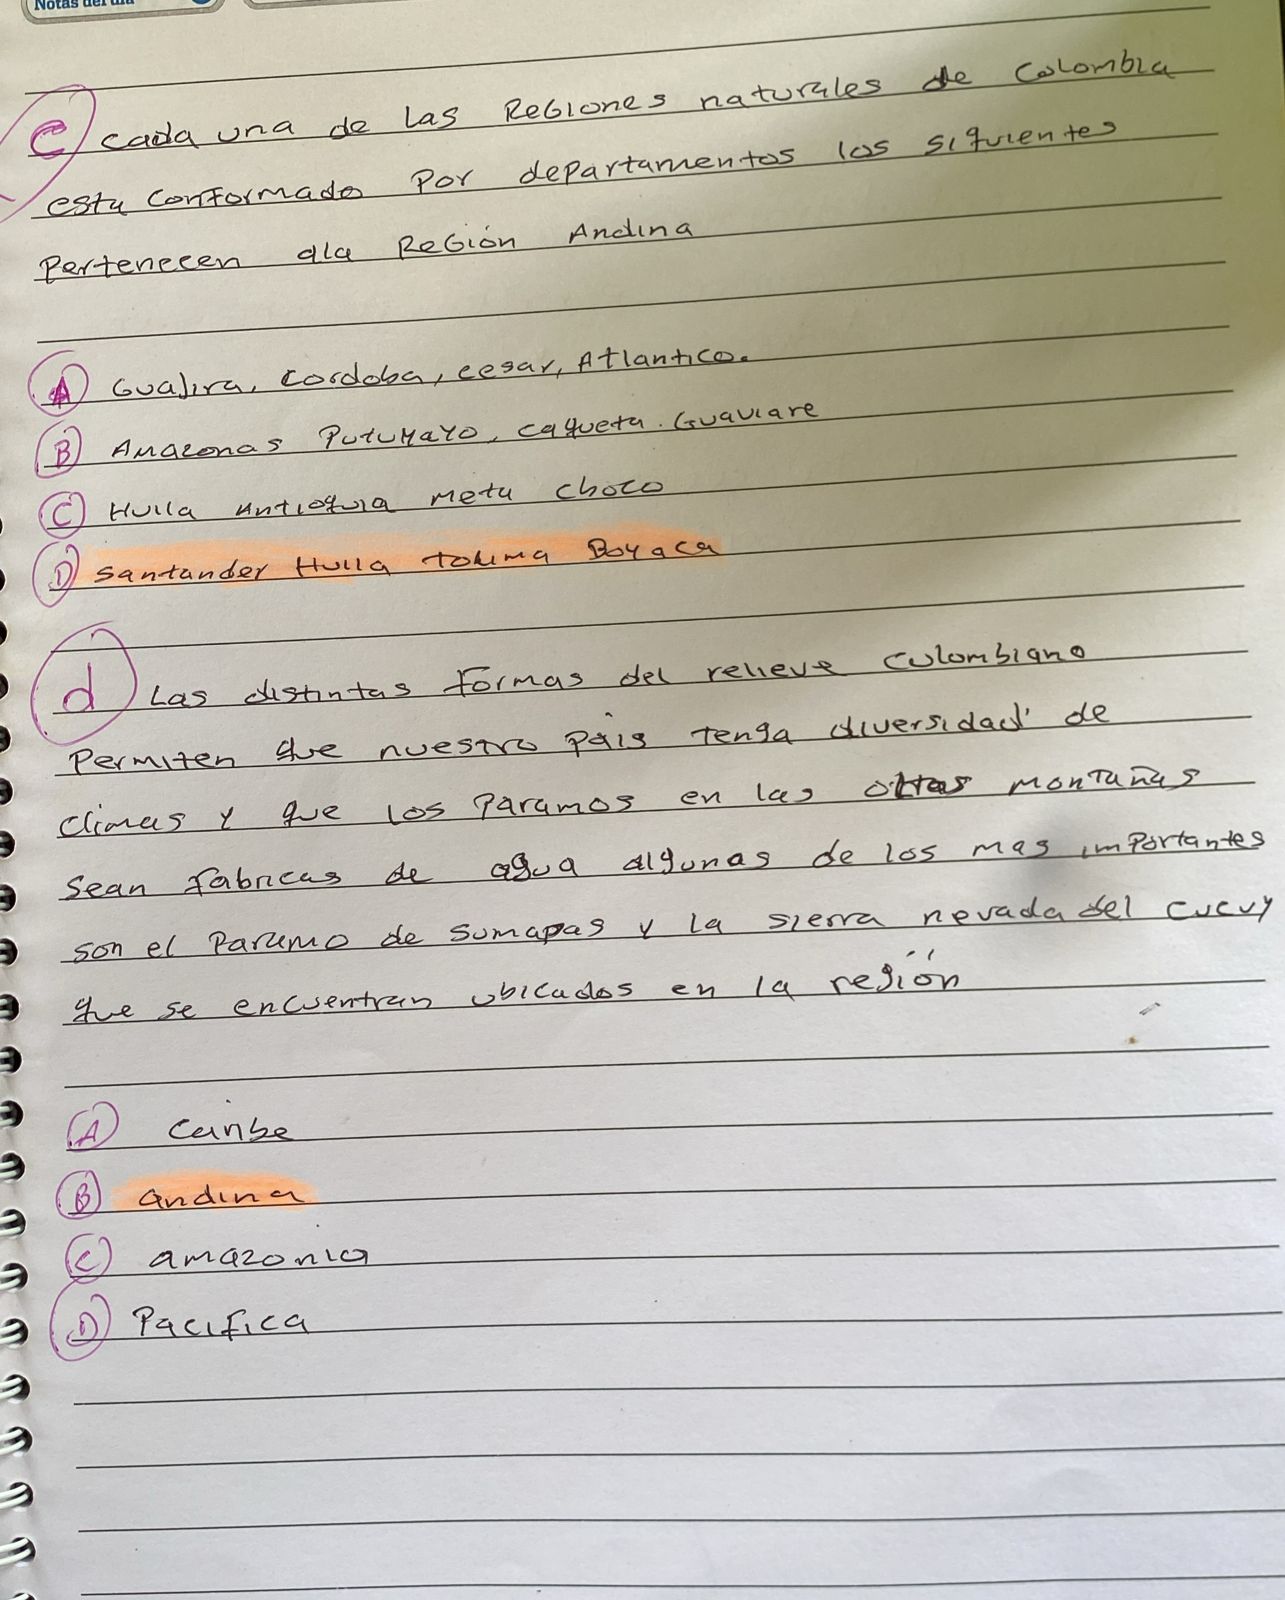 Notas del día
C cada una de las Regiones naturales de Colombia
esta conformado Por departamentos los siguientes
Pertenecen ala Región Andina
A Guajira, Cordoba, cesar, Atlantico.
B Amazonas Putumayo, caqueta. Guaviare
C Huila Antioquia meta choco
D Santander Huila tolima Boyaca
d Las distintas formas del relieve colombiano
Permiten que nuestro pais tenga diversidad de
climas y que los Paramos en las altas montañas
sean fabricas de agua algunas de los mas importantes
son el Paramo de sumapas y la sierra nevada del cucuy
que se encuentran ubicados en la región
A caribe
B andina
C amazonia
D Pacifica